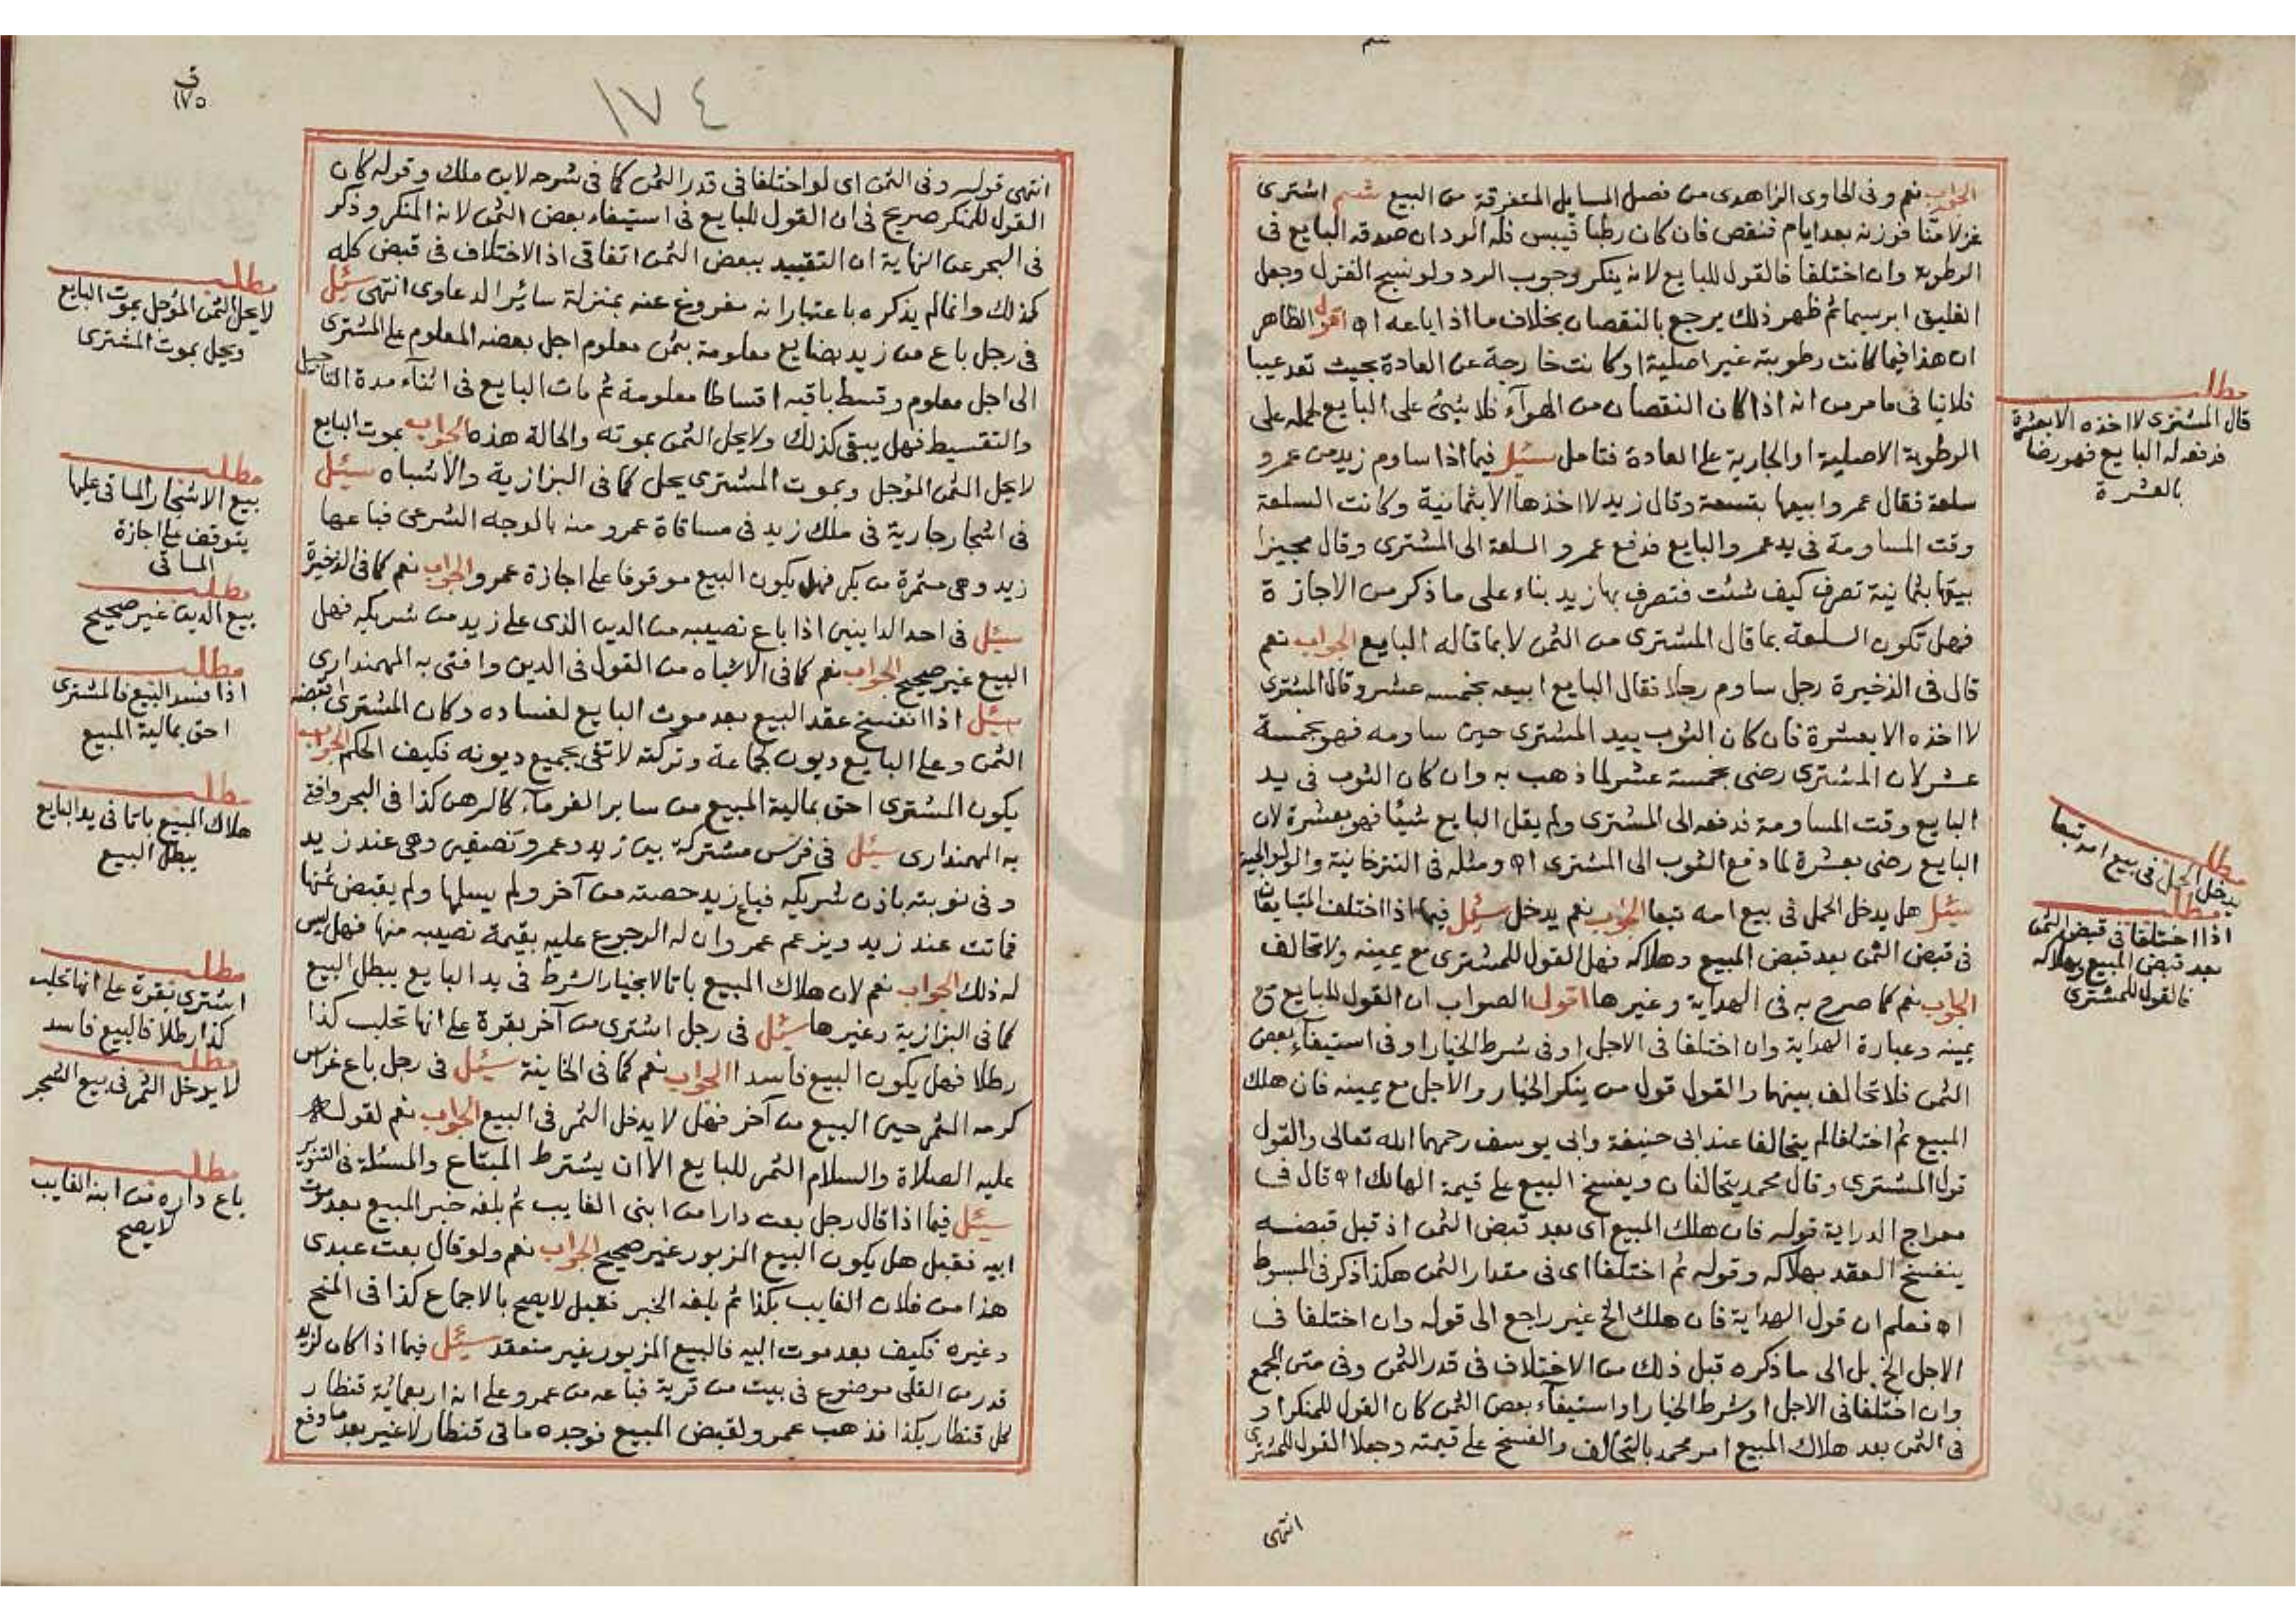 الجواب نعم وفى الحاوى الزاهدى من فصل المسايل المتفرقة من البيع شم اشترى
غزلا منا فوزنه بعد ايام فنقص فان كان رطبا فيبس فله الرد ان صدقه البايع فى
الرطوبة وان اختلفا فالقول للبايع لانه ينكر وجوب الرد ولو نسج الغزل وجعل
الفليق ابرسيما ثم ظهر ذلك يرجع بالنقصان بخلاف ما اذا باعه اه اقول الظاهر
ان هذا فيما كانت رطوبته غير اصلية او كانت خارجة عن العادة بحيث تعد عيبا
فلا ينافى ما مر من انه اذا كان النقصان من الهوآء فلا شئ على البايع لحمله على
الرطوبة الاصلية او الجارية على العادة فتامل سئل فيما اذا ساوم زيد من عمرو
سلعة فقال عمرو ابيعها بتسعة وقال زيد لا اخذها الا بثمانية وكانت السلعة
وقت المساومة فى يد عمرو البايع فدفع عمرو السلعة الى المشترى وقال مجيزا
بيعها بثمانية تصرف كيف شئت فتصرف بها زيد بناء على ما ذكر من الاجازة
فهل تكون السلعة بما قال المشترى من الثمن لا بما قاله البايع الجواب نعم
قال فى الذخيرة رجل ساوم رجلا فقال البايع ابيعه بخمسه عشر وقال المشترى
لا اخذه الا بعشرة فان كان الثوب بيد المشترى حين ساومه فهو بخمسة
عشر لان المشترى رضى بخمسة عشر لما ذهب به وان كان الثوب فى يد
البايع وقت المساومة فدفعه الى المشترى ولم يقل البايع شيئا فهو بعشرة لان
البايع رضى بعشرة لما دفع الثوب الى المشترى اه ومثله فى التترخانية والولوالجية
سئل هل يدخل الحمل فى بيع امه تبعا الجواب نعم يدخل سئل فيما اذا اختلف المتبايعان
فى قبض الثمن بعد قبض المبيع وهلاكه فهل القول للمشترى مع يمينه ولا تحالف
الجواب نعم كما صرح به فى الهداية وغيرها اقول الصواب ان القول للبايع مع
يمينه وعبارة الهداية وان اختلفا فى الاجل او فى شرط الخيار او فى استيفآء بعض
الثمن فلا تحالف بينهما والقول قول من ينكر الخيار والاجل مع يمينه فان هلك
المبيع ثم اختلفا لم يتحالفا عند ابى حنيفة وابى يوسف رحمهما الله تعالى والقول
قول المشترى وقال محمد يتحالفان ويفسخ البيع على قيمة الهالك اه قال فى
معراج الدراية قوله فان هلك المبيع اى بعد قبض الثمن اذ قبل قبضه
ينفسخ العقد بهلاكه وقوله ثم اختلفا اى فى مقدار الثمن هكذا ذكر فى المبسوط
اه فعلم ان قول الهداية فان هلك الخ غير راجع الى قوله وان اختلفا فى
الاجل الخ بل الى ما ذكره قبل ذلك من الاختلاف فى قدر الثمن وفى متن المجمع
وان اختلفا فى الاجل او شرط الخيار او استيفآء بعض الثمن كان القول للمنكر او
فى الثمن بعد هلاك المبيع امر محمد بالتحالف والفسخ على قيمته وجعلا القول للمشترى
انتهى
مطلب
قال المشترى لا اخذه الا بعشرة
فدفعه له البايع فهو رضا
بالعشرة
مطلب
يدخل الحمل فى بيع امه تبعا
مطلب
اذا اختلفا فى قبض الثمن
بعد قبض المبيع وهلاكه
فالقول للمشترى
١٧٤
ف
١٧٥
انتهى قوله وفى الثمن اى لو اختلفا فى قدر الثمن كما فى شرحه لابن ملك وقوله كان
القول للمنكر صريح فى ان القول للبايع فى استيفاء بعض الثمن لانه المنكر وذكر
فى البحر عن النهاية ان التقييد ببعض الثمن اتفاقى اذ الاختلاف فى قبض كله
كذلك وانما لم يذكره باعتبار انه مفروغ عنه بمنزلة سائر الدعاوى انتهى سئل
فى رجل باع من زيد بضايع معلومة بثمن معلوم اجل بعضه المعلوم على المشترى
الى اجل معلوم وقسط باقيه اقساطا معلومة ثم مات البايع فى اثنآء مدة التاجيل
والتقسيط فهل يبقى كذلك ولا يحل الثمن بموته والحالة هذه الجواب بموت البايع
لا يحل الثمن المؤجل وبموت المشترى يحل كما فى البزازية والاشباه سئل
فى اشجار جارية فى ملك زيد فى مساقاة عمرو منه بالوجه الشرعى فباعها
زيد وهى مثمرة من بكر فهل يكون البيع موقوفا على اجازة عمرو الجواب نعم كما فى الذخيرة
سئل فى احد الداينين اذا باع نصيبه من الدين الذى على زيد من شريكه فهل
البيع غير صحيح الجواب نعم كما فى الاشباه من القول فى الدين وافتى به المهمندارى
سئل اذا انفسخ عقد البيع بعد موت البايع لفساده وكان المشترى نقضه
الثمن وعلى البايع ديون لجماعة وتركته لا تفى بجميع ديونه فكيف الحكم الجواب
يكون المشترى احق بمالية المبيع من ساير الغرمآء كالرهن كذا فى البحر وافتى
به المهمندارى سئل فى فرس مشتركة بين زيد وعمرو نصفين وهى عند زيد
وفى نوبته باذن شريكه فباع زيد حصته من آخر ولم يسلمها ولم يقبض ثمنها
فماتت عند زيد ويزعم عمرو ان له الرجوع عليه بقيمة نصيبه منها فهل ليس
له ذلك الجواب نعم لان هلاك المبيع باتا لا بخيار الشرط فى يد البايع يبطل البيع
كما فى البزازية وغيرها سئل فى رجل اشترى من آخر بقرة على انها تحلب كذا
رطلا فهل يكون البيع فاسدا الجواب نعم كما فى الخانية سئل فى رجل باع غراس
كرمه المثمر حين البيع من آخر فهل لا يدخل الثمر فى البيع الجواب نعم لقوله
عليه الصلاة والسلام الثمر للبايع الا ان يشترط المبتاع والمسئلة فى التنوير
سئل فيما اذا قال رجل بعت دارا من ابنى الغايب ثم بلغه خبر المبيع بعد موت
ابيه فقبل هل يكون البيع المزبور غير صحيح الجواب نعم ولو قال بعت عبدى
هذا من فلان الغايب بكذا ثم بلغه الخبر فقبل لا يصح بالاجماع كذا فى المنح
وغيره فكيف بعد موت ابيه فالبيع المزبور غير منعقد سئل فيما اذا كان لزيد
قدر من القلى موضوع فى بيت من قرية فباعه من عمرو على انه اربعمائة قنطار
كل قنطار بكذا فذهب عمرو لقبض المبيع فوجده ماتى قنطار لا غير بعد ما دفع
مطلب
لا يحل الثمن المؤجل بموت البايع
ويحل بموت المشترى
مطلب
بيع الاشجار المساقى عليها
يتوقف على اجازة
المساقى
مطلب
بيع الدين غير صحيح
مطلب
اذا فسد البيع فالمشترى
احق بمالية المبيع
مطلب
هلاك المبيع باتا فى يد البايع
يبطل البيع
مطلب
اشترى بقرة على انها تحلب
كذا رطلا فالبيع فاسد
مطلب
لا يدخل الثمر فى بيع الشجر
مطلب
باع داره من ابنه الغايب
لا يصح